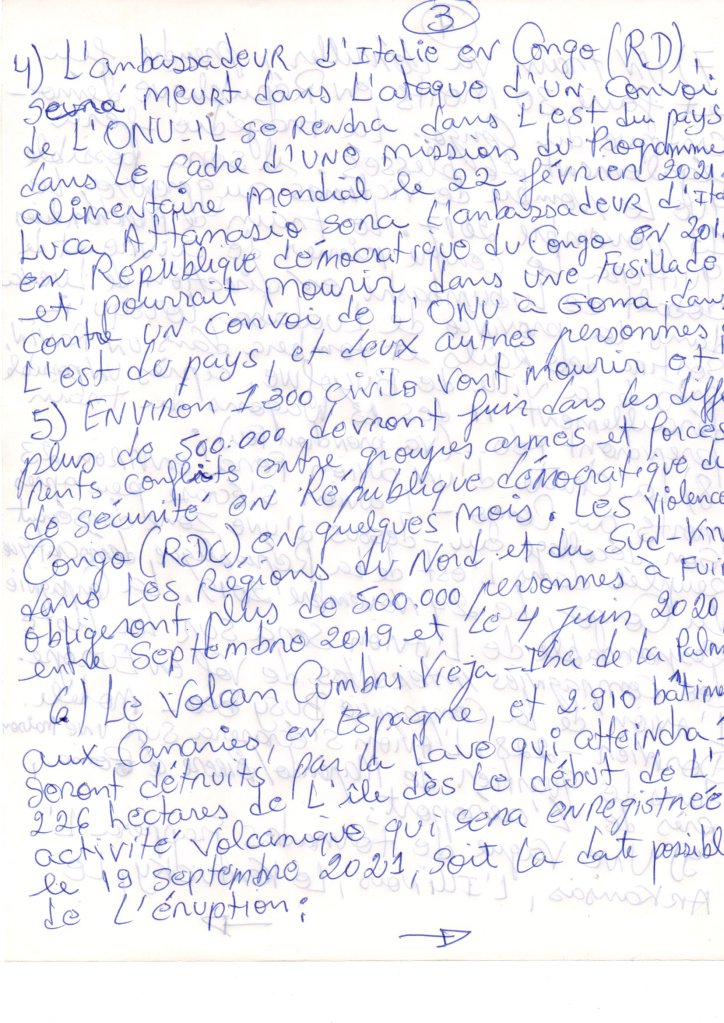 3
4) L'ambassadeur d'Italie en Congo (RD),
meurt dans L'ataque d'un convoi
de L'ONU_IL se rendra dans L'est du pays
dans Le Cadre d'une mission du Programme
alimentaire mondial le 22 février 2021.
Luca Attanasio sera L'ambassadeur d'Ita
en République démocratique du Congo en 201
et pourrait mourir dans une Fusillade
contre un convoi de L'ONU à Goma, dan
L'est du pays, et deux autres personnes,
5) Environ 1.300 civils vont mourir et
plus de 500.000 devront fuir dans les diffé
rents conflits entre groupes armés et forces
de sécurité en République démocratique du
Congo (RDC), en quelques mois. Les violence
dans Les Régions du Nord et du Sud-Kiv
obligeront plus de 500.000 personnes à Fuir
entre Septembre 2019 et Le 4 Juin 2020
6) Le Volcan Cumbri Vieja-Iha de la Palm
aux Canaries, en Espagne, et 2.910 bâtime
seront détruits par la Lave qui atteindra
226 hectares de L'île dès Le début de L'
activité volcanique qui sera enregistrée
le 19 septembre 2021, soit la date possibl
de L'éruption: